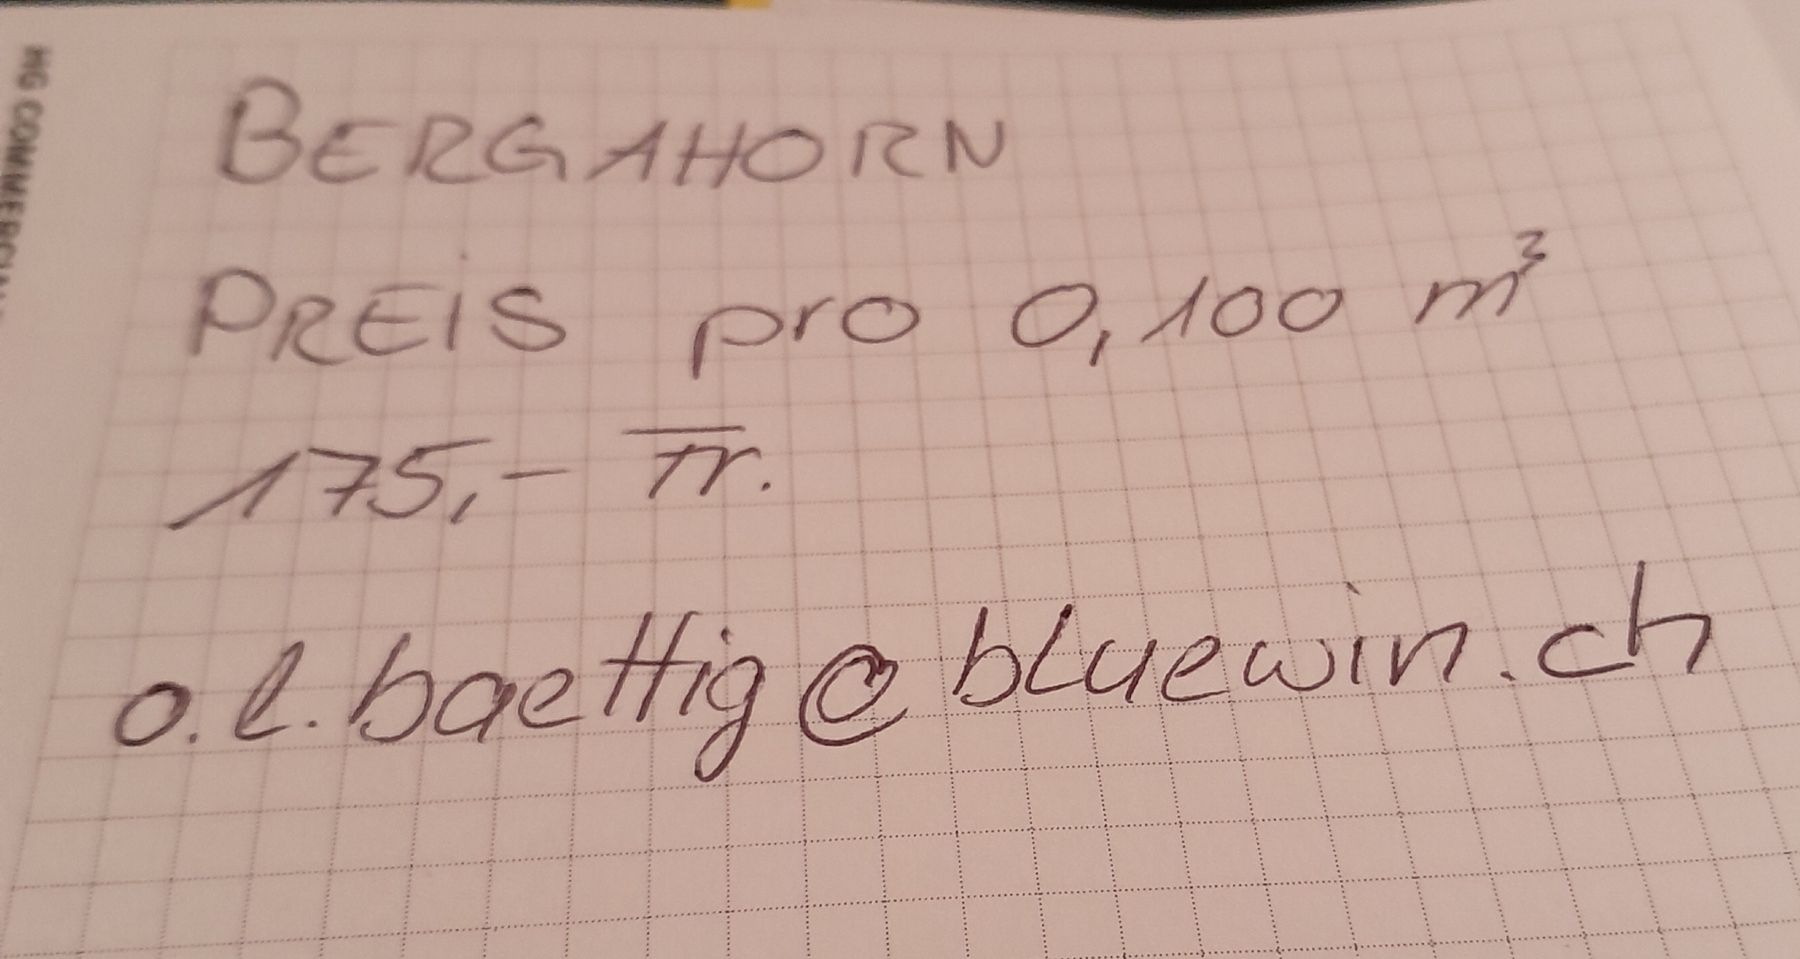 BERGAHORN
PREiS pro 0,100 m³
175,- Fr.
o.l.baettig@bluewin.ch